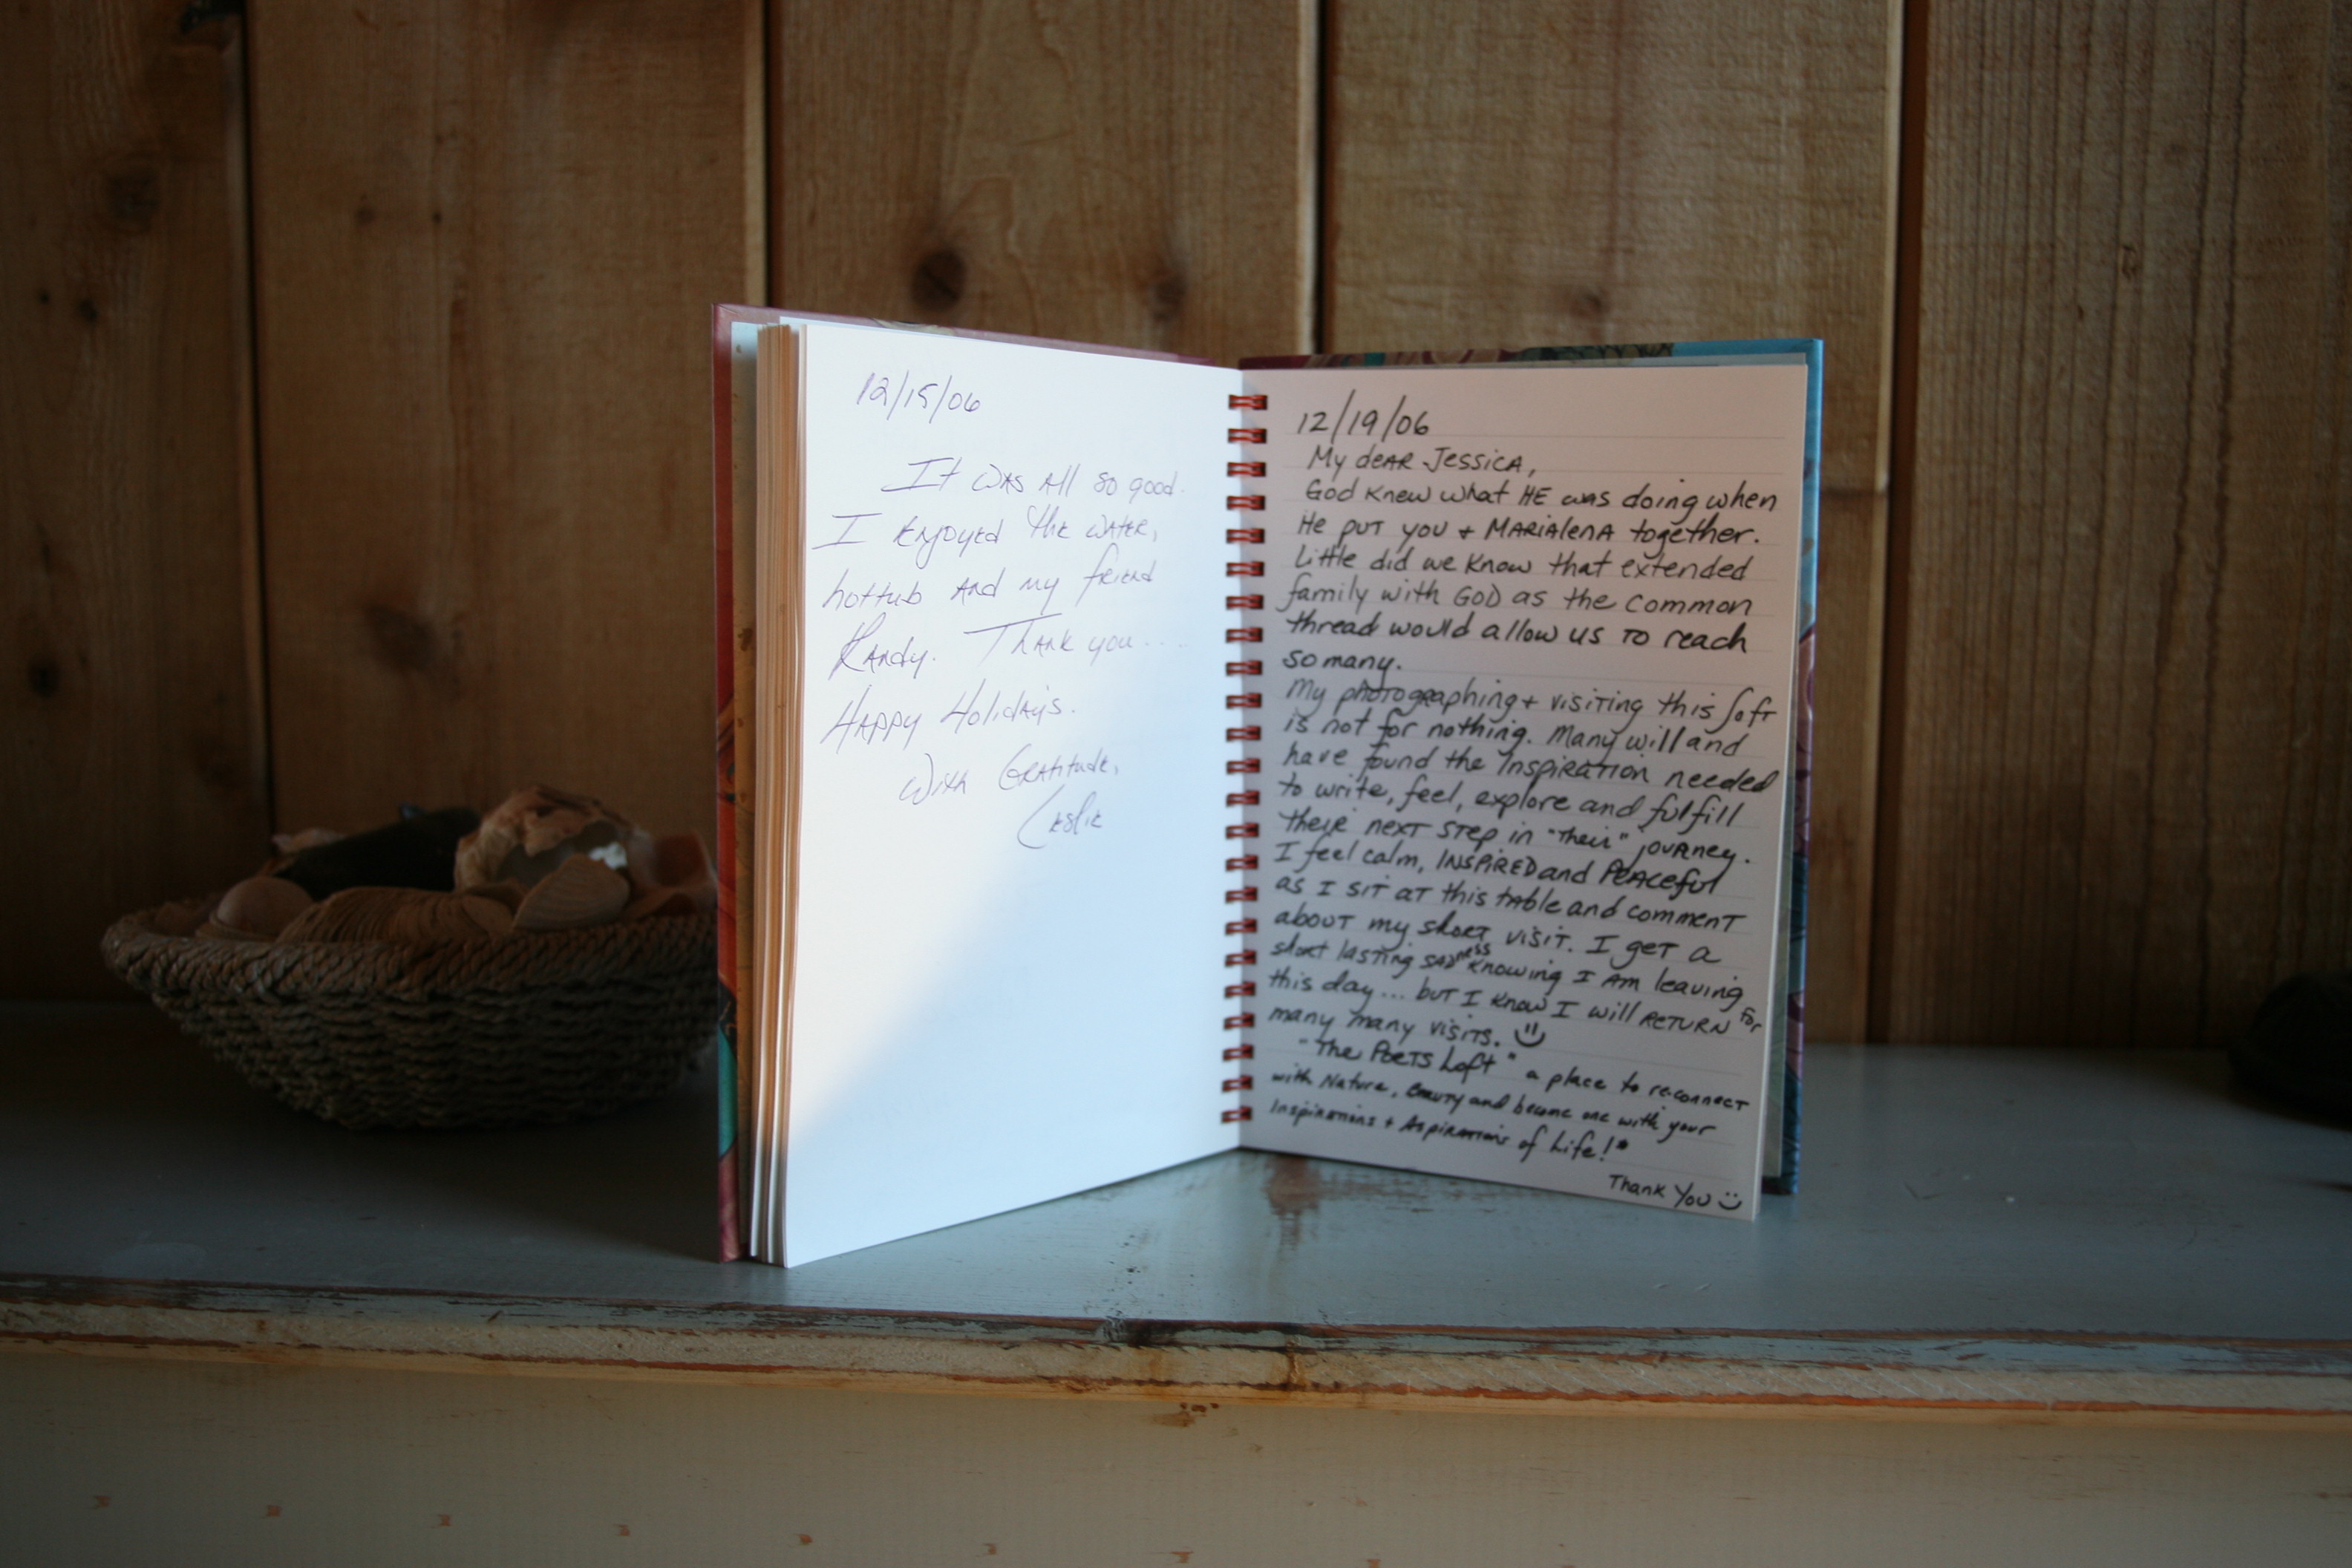 12/15/06
It was all so good.
I enjoyed the water,
hottub and my friend
Randy. Thank you....
Happy Holidays.
With Gratitude,
Leslie
12/19/06
My dear Jessica,
God knew what HE was doing when
He put you + Marialena together.
Little did we know that extended
family with God as the common
thread would allow us to reach
so many.
My photographing + visiting this loft
is not for nothing. Many will and
have found the Inspiration needed
to write, feel, explore and fulfill
their next step in "their" journey.
I feel calm, INSPIRED and Peaceful
as I sit at this table and comment
about my short visit. I get a
short lasting sadness knowing I am leaving
this day... but I know I will return for
many many visits.
"The Poets Loft" a place to re-connect
with Nature, Beauty and become one with your
Inspirations + Aspirations of Life!"
Thank You